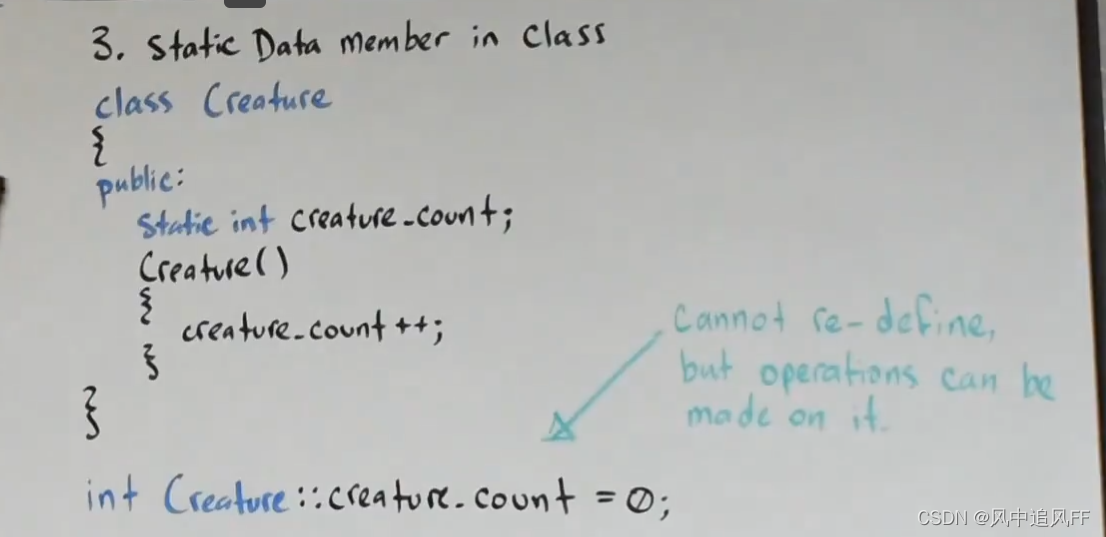 3. Static Data member in class
class Creature
{
public:
static int creature_count;
Creature()
{
creature_count++;
}
}
cannot re-define,
but operations can be
made on it.
int Creature::creature_count = 0;
CSDN @风中追风FF